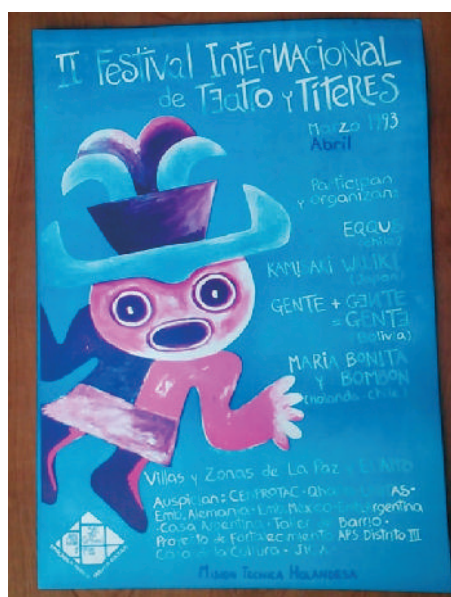 II Festival Internacional
de Teatro y Títeres
Marzo 1993
Abril
Participan
y organizan:
EQQUS
(chile)
KAMI AKI
GENTE + GENTE
= GENTE
(Bolivia)
MARIA BONITA
y BOMBON
(holanda-chile)
Villas y Zonas de La Paz y El Alto
Auspician: CENPROTAC
Emb. Alemania - Emb. Mexico - Emb. Argentina
- Casa Argentina - Taller de Barrio -
Proyecto de Fortalecimiento APS Distrito III
Casa de la Cultura -
MISION TECNICA HOLANDESA